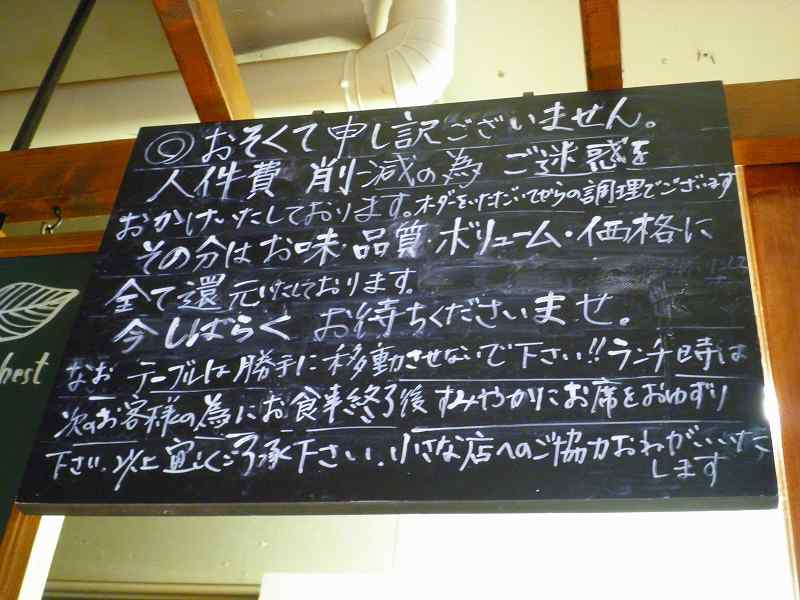 ◎おそくて申し訳ございません。
人件費 削減の為 ご迷惑を
おかけいたしております。オーダをいただいてからの調理でございます
その分はお味・品質・ボリューム・価格に
全て還元いたしております。
今しばらく お待ちくださいませ。
なお テーブルは勝手に移動させないで下さい!!ランチ時は
次のお客様の為にお食事終了後すみやかにお席をおゆずり
下さい。以上宜しくご了承下さい。小さな店へのご協力おねがいいた
します
hest